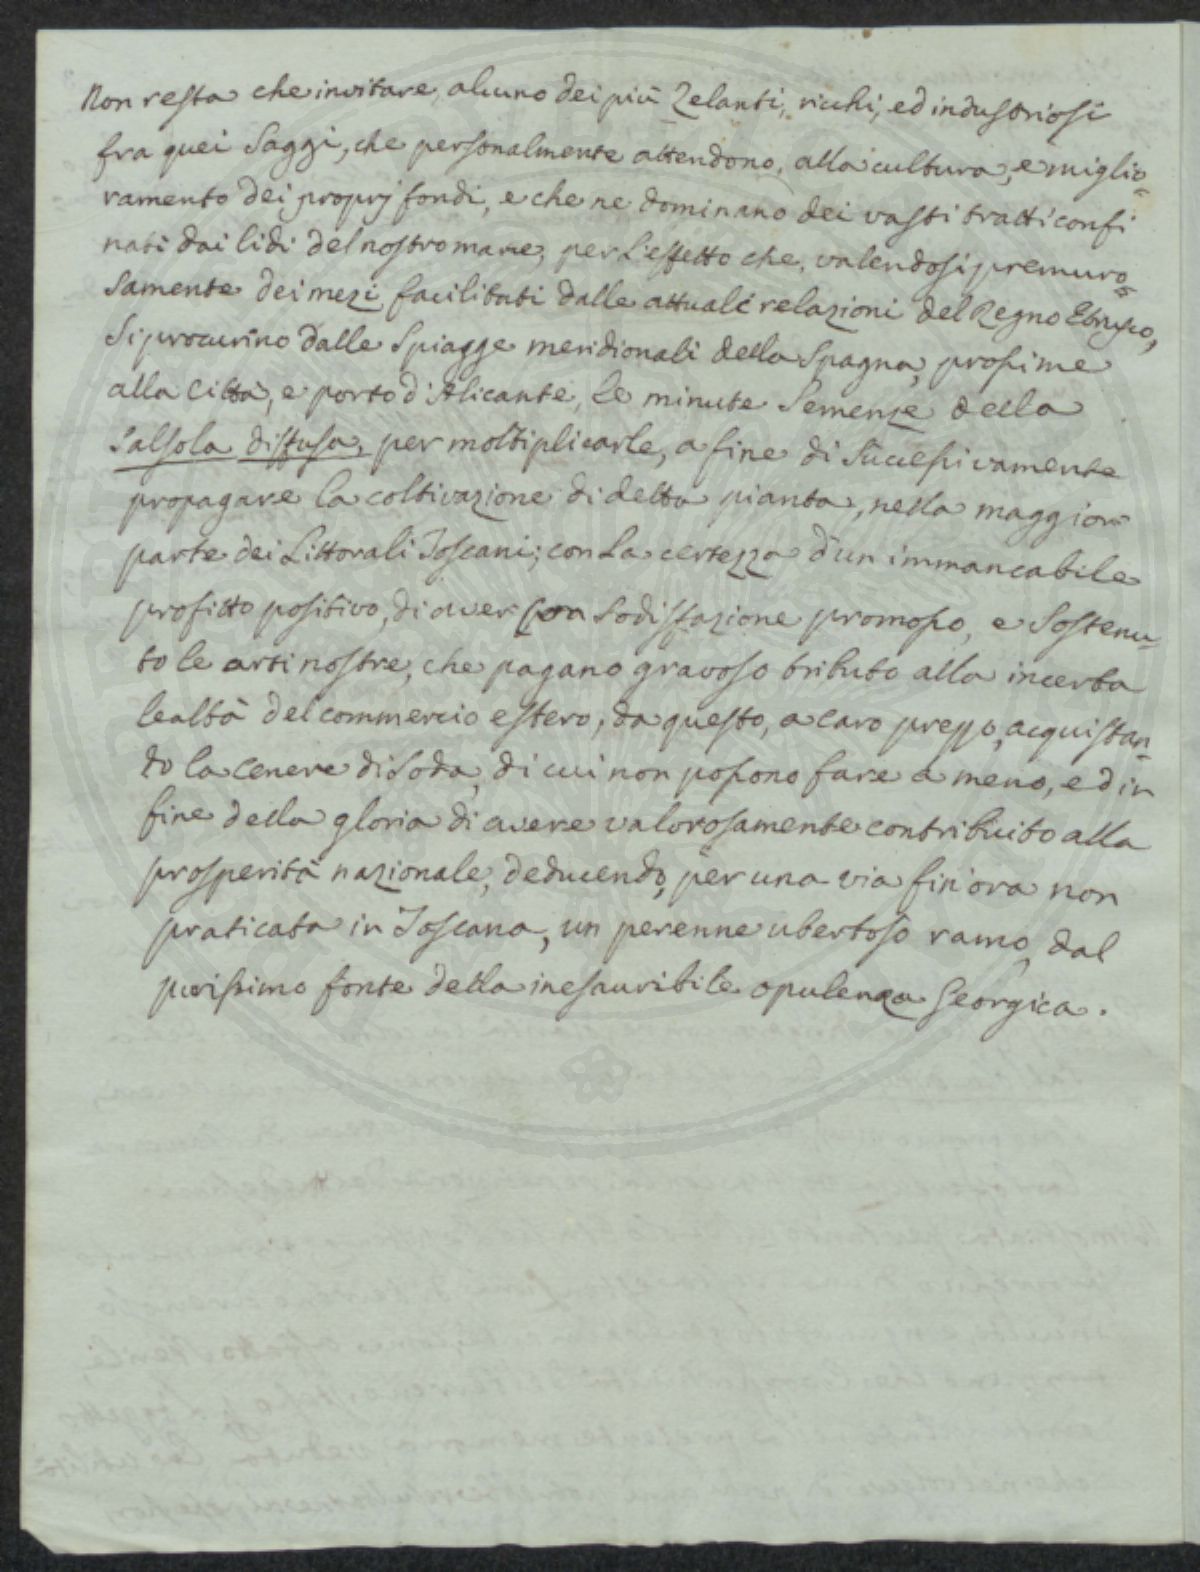 Non resta che invitare, alcuno dei più Zelanti, ricchi, ed industriosi
fra quei Saggi, che personalmente attendono, alla cultura, e miglio=
ramento dei proprj fondi, e che ne dominano dei vasti tratti confi
nati dai lidi del nostro mare, per l'effetto che, valendosi premuro=
samente dei mezi facilitati dalle attuali relazioni del Regno Etrusco,
Si procurino dalle Spiagge meridionali della Spagna, prossime
alla Città, e porto d'Alicante, le minute Semenze della
Salsola diffusa, per moltiplicarle, a fine di Successivamente
propagare la coltivazione di detta pianta, nella maggior
parte dei Littorali Toscani; con la certezza d'un immancabile
profitto positivo, di aver con sodisfazione promosso, e Sostenu=
to le arti nostre, che pagano gravoso tributo alla incerta
lealtà del commercio estero, da questo, a caro prezzo, acquistan=
do la cenere di Soda, di cui non possono fare a meno, ed in
fine della gloria di avere valorosamente contribuito alla
prosperità nazionale, deducendo, per una via fin'ora non
praticata in Toscana, un perenne ubertoso ramo, dal
purissimo fonte della inesauribile opulenza Georgica.